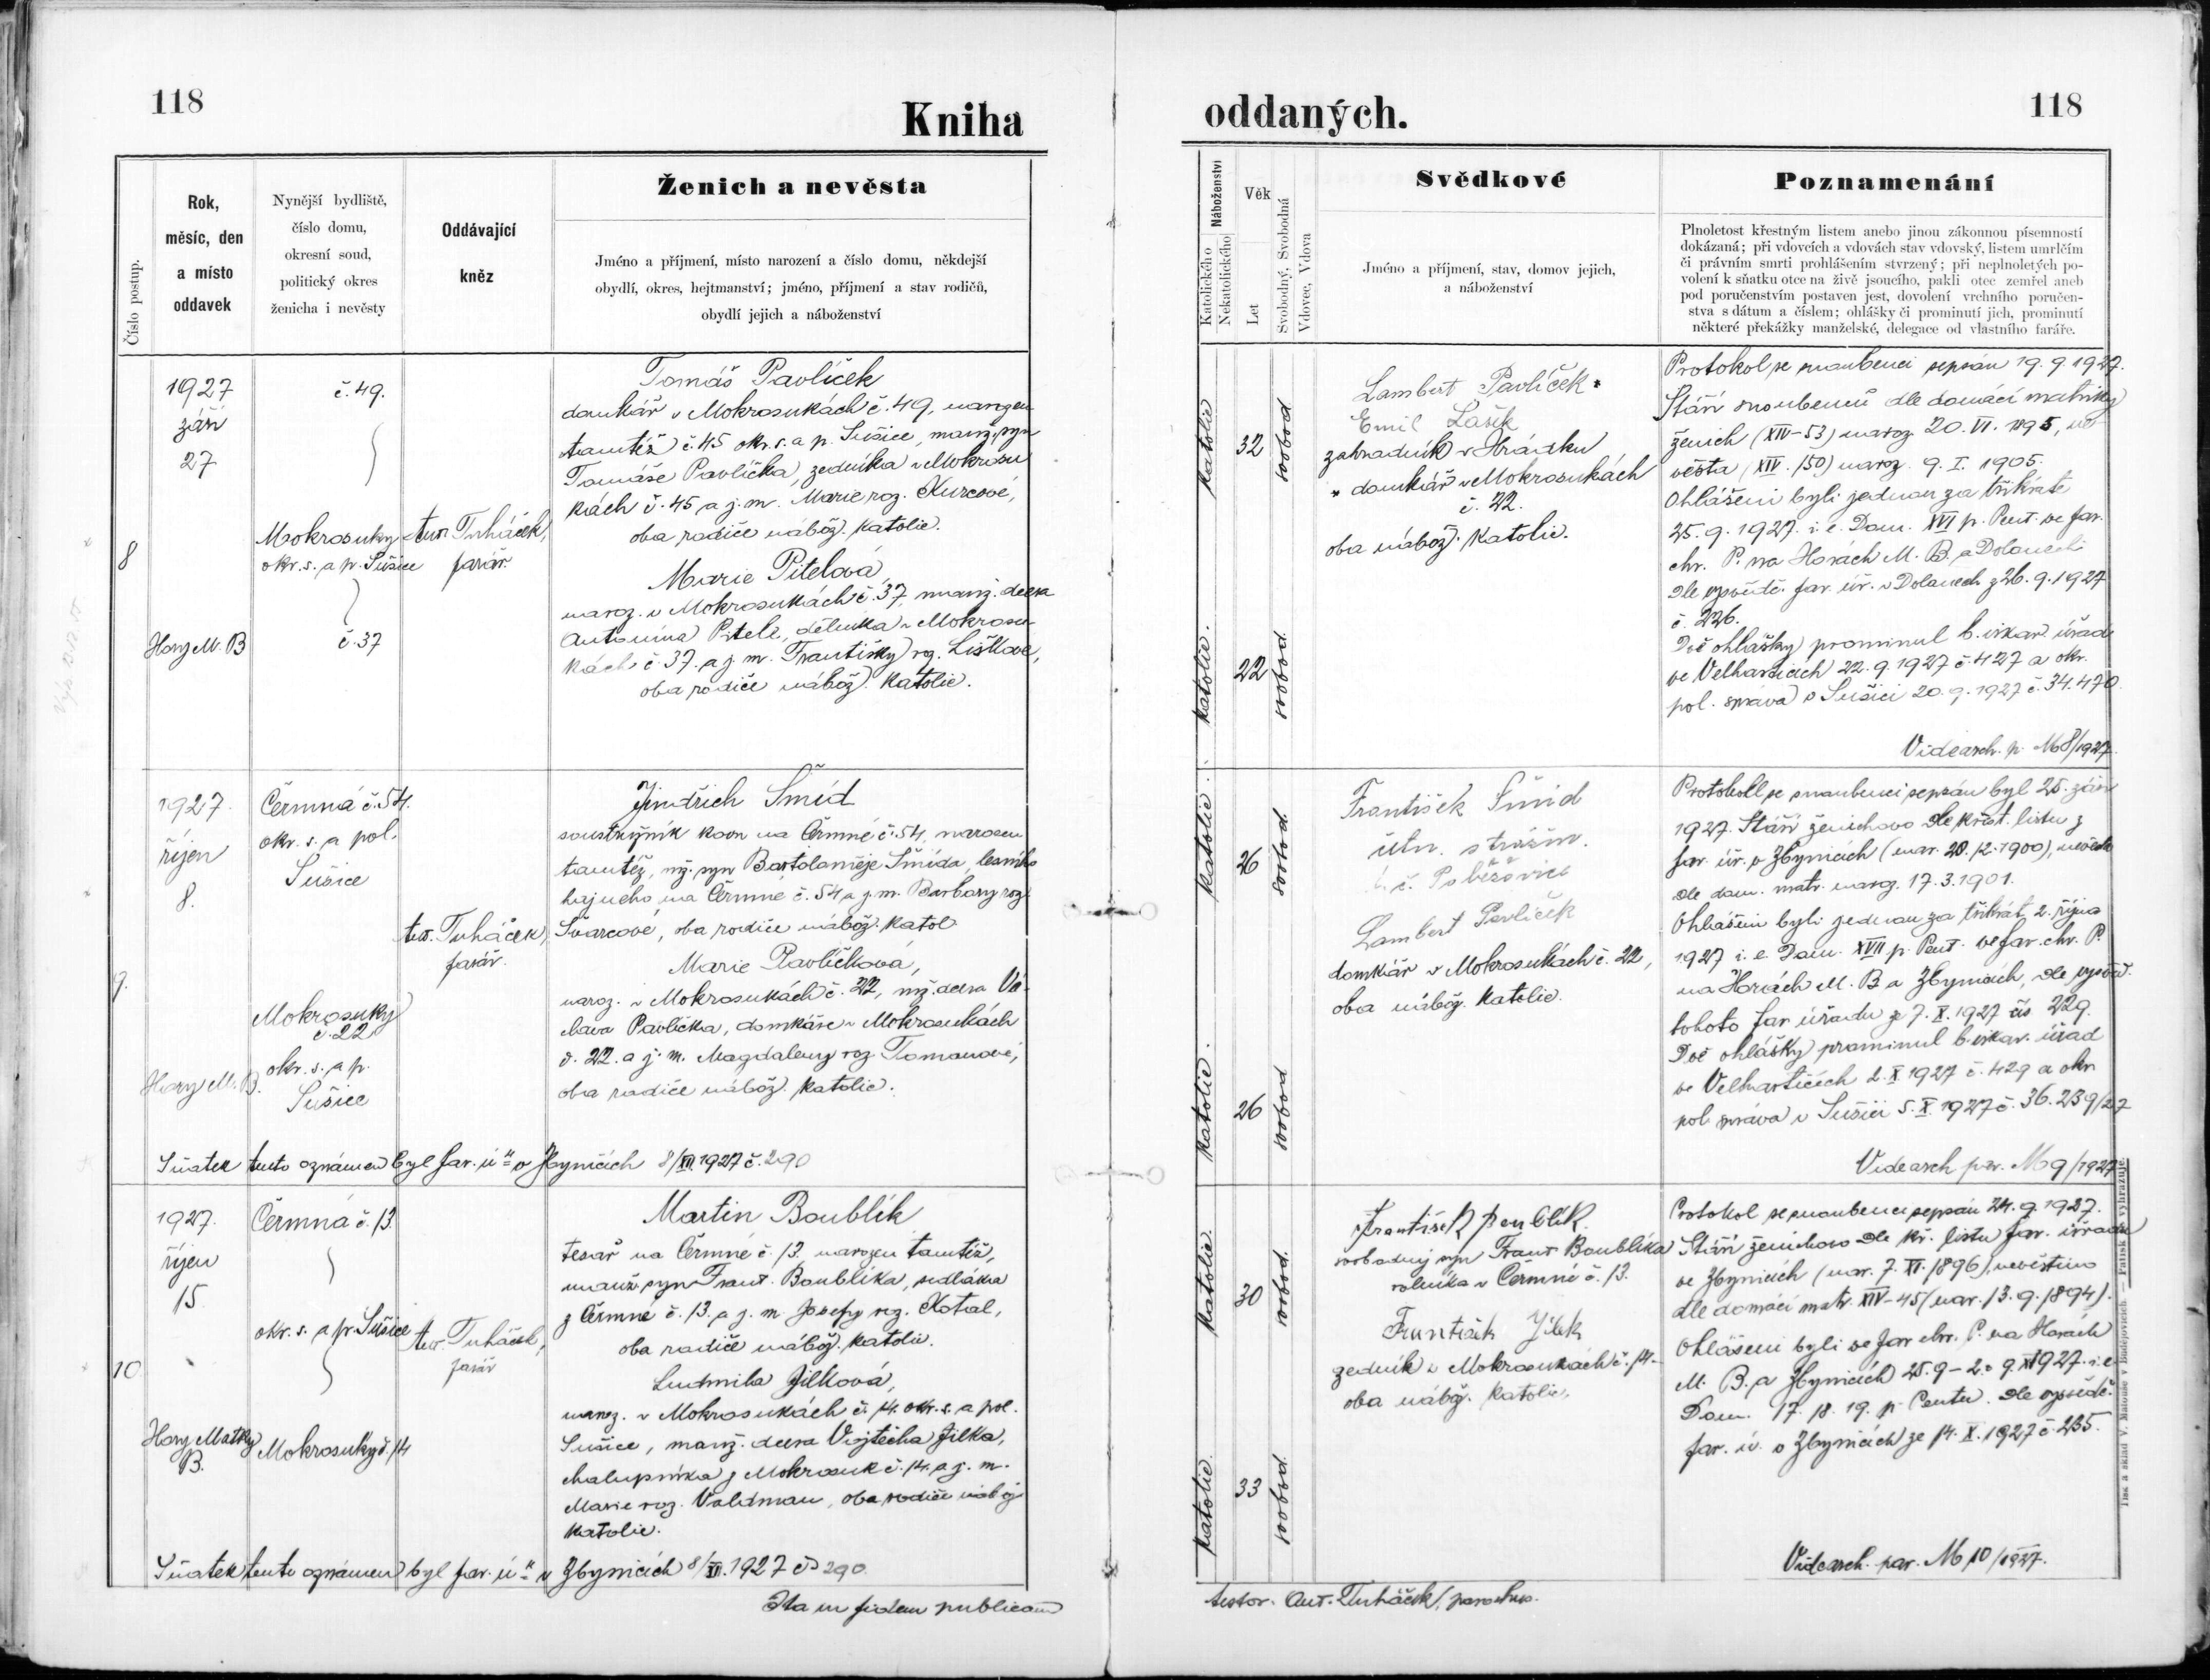 118
Kniha
Číslo postup.
Rok,
měsíc, den
a místo
oddavek
Nynější bydliště,
číslo domu,
okresní soud,
politický okres
ženicha i nevěsty
Oddávající
kněz
Ženich a nevěsta
Jméno a příjmení, místo narození a číslo domu, někdejší
obydlí, okres, hejtmanství; jméno, příjmení a stav rodičů,
obydlí jejich a náboženství
8
1927
září
27
Hory M. B
č. 49.
Mokrosuky
okr. s. a p. Sušice
č. 37
Ant. Tuháček,
farář.
Tomáš Pavlíček
domkář v Mokrosukách č. 49, narozen
tamtéž č. 45 okr. s. a p. Sušice, manž. syn
Tomáše Pavlíčka, zedníka v Mokrosu
kách č. 45 a j. m. Marie roz. Kurcové,
oba rodiče nábož. katolic.
Marie Pitelová,
naroz. v Mokrosukách č. 37, manž. dcera
Antonína Pitele, dělníka v Mokrosu-
kách č 37. a j. m. Františky roz. Liškové,
oba rodiče nábož. katolic.
9.
1927.
říjen
8.
Hory M. B.
Čermná č. 54.
okr. s. a pol.
Sušice
Mokrosuky
č. 22
okr. s. a p.
Sušice
Ant. Tuháček,
farář.
Jindřich Šmíd
soustružník kovu na Čermné č. 54, narozen
tamtéž, mž. syn Bartoloměje Šmída, lesního
hajného na Čermné č. 54 a j. m. Barbory roz.
Švarcové, oba rodiče nábož. katol
Marie Pavlíčková,
naroz. v Mokrosukách č. 22, mž. dcera Vá-
clava Pavlíčka, domkáře v Mokrosukách
č. 22. a j. m. Magdaleny roz. Tomanové,
oba rodiče nábož. katolic.
Sňatek tento oznámen byl far. ú v Zbynicích 8/XII.1927 č. 290
10
1927.
říjen
15
Hory Matky
B.
Čermná č. 13.
okr. s. a p. Sušice
Mokrosuky č. 14
Ant. Tuháček,
farář
Martin Boublík
tesař na Čermné č. 13, narozen tamtéž,
manž. syn Frant. Boublíka, sedláka
z Čermné č. 13. a j. m Josefy roz. Kotal,
oba rodiče nábož. katolic.
Ludmila Jílková,
naroz. v Mokrosukách č. 14. okr. s. a pol.
Sušice, manž. dcera Vojtěcha Jílka,
chalupníka z Mokrosuk č. 14. a j. m.
Marie roz. Valdman, oba rodiče nábož
katolic.
Sňatek tento oznámen byl far. ú v Zbynicích 8/XII.1927 č 290
Ita in fidem publicam
oddaných.
118
Náboženství
Katolického
Nekatolického
Věk
Let
Svobodný, Svobodná
Vdovec, Vdova
Svědkové
Jméno a příjmení, stav, domov jejich,
a náboženství
Poznamenání
Plnoletost křestným listem anebo jinou zákonnou písemností
dokázaná; při vdovcích a vdovách stav vdovský, listem umrlčím
či právním smrti prohlášením stvrzený; při neplnoletých po-
volení k sňatku otce na živě jsoucího, pakli otec zemřel aneb
pod poručenstvím postaven jest, dovolení vrchního poručen-
stva s dátum a číslem; ohlášky či prominutí jich, prominutí
některé překážky manželské, delegace od vlastního faráře.
katolic
32
svobod
katolic.
22
svobod.
Lambert Pavlíček *
Emil Lašek
zahradník v Hrádku
* domkář v Mokrosukách
č. 22.
oba nábož. katolic.
Protokol se snoubenci sepsán 19. 9. 1927.
Stáří snoubenců dle domácí matriky
ženich (XIV-53) naroz. 20. VI. 1895, ne
věsta (XIV. 150) naroz. 9. I. 1905.
Ohlášeni byli jednou za třikráte
25. 9. 1927. i. e. Dom. XVI p. Pent. ve far.
chr. P. na Horách M. B. a Dolanech
dle vysvědč. far. úř. v Dolanech z 26. 9. 1927
č. 226.
Dvě ohlášky prominul b. vikar. úřad
ve Velharticích 22. 9. 1927 č. 427 a okr.
pol. správa v Sušici 20. 9. 1927 č. 34.470.
Vide arch. p. M 8/1927.
katolic.
26
svobod.
katolic.
26
svobod
František Šmíd
útn. strážm.
Poběžovice
Lambert Pavlíček
domkář v Mokrosukách č. 22,
oba nábož. katolic.
Protokoll se snoubenci sepsán byl 25. září
1927. Stáří ženichovo dle křest. listu z
far. úř. v Zbynicích (nar. 20. 12. 1900), nevěsta
dle dom. matr. naroz. 17. 3. 1901.
Ohlášeni byli jednou za třikrát 2. října
1927 i. e. Dom. XVII p. Pent. ve far. chr. P.
na Horách M. B. a Zbynicích, dle vysvěd.
tohoto far úřadu z 7. X. 1927 čís 229.
Dvě ohlášky prominul b. vikar. úřad
ve Velharticích 2. X 1927 č. 429 a okr.
pol. správa v Sušici 5. X. 1927 č. 36.239/27
Vide arch par. M 9/1927
katolic.
30
svobod.
katolic.
33
svobod.
František Boublík.
svobodný syn Frant Boublíka
rolníka v Čermné č. 13.
František Jílek
zedník v Mokrosukách č. 14.
oba nábož. katolic.
Protokol se snoubenci sepsán 24. 9. 1927.
Stáří ženichovo dle kř. listu far. úřadu
ve Zbynicích (nar. 7. XI. 1896), nevěstino
dle domácí matr. XIV-45 (nar. 13. 9. 1894).
Ohlášeni byli ve far chr. P. na Horách
M. B. a Zbynicích 25. 9 – 2. 9. X 1927. i. e.
Dom. 17. 18. 19. p. Pentec. dle vysvědč.
far. úř. v Zbynicích ze 14. X. 1927 č. 235.
Vide arch. par. M 10/1927.
Tisk a sklad V. Matouše v Budějovicích. — Patisk vyhrazuje.
testor. Ant. Tuháček, parochus.